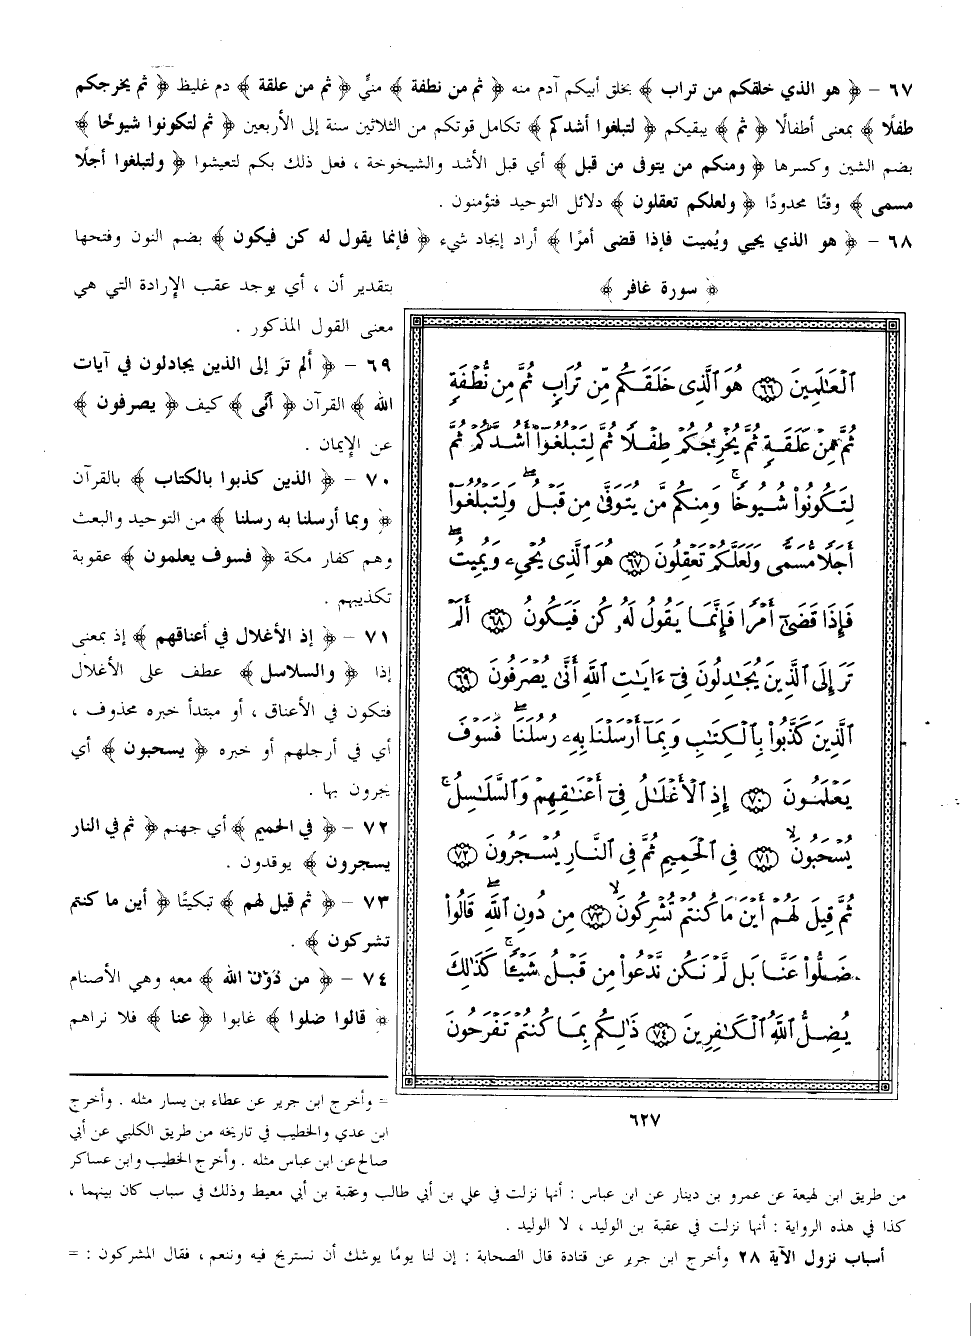 ٦٧ - ﴿ هو الذي خلقكم من تراب ﴾ بخلق أبيكم آدم منه ﴿ ثم من نطفة ﴾ منيٍّ ﴿ ثم من علقة ﴾ دم غليظ ﴿ ثم يخرجكم
طفلًا ﴾ بمعنى أطفالًا ﴿ ثم ﴾ يبقيكم ﴿ لتبلغوا أشدكم ﴾ تكامل قوتكم من الثلاثين سنة إلى الأربعين ﴿ ثم لتكونوا شيوخًا ﴾
بضم الشين وكسرها ﴿ ومنكم من يتوفى من قبل ﴾ أي قبل الأشد والشيخوخة ، فعل ذلك بكم لتعيشوا ﴿ ولتبلغوا أجلًا
مسمى ﴾ وقتًا محدودًا ﴿ ولعلكم تعقلون ﴾ دلائل التوحيد فتؤمنون .
٦٨ - ﴿ هو الذي يحيي ويُميت فإذا قضى أمرًا ﴾ أراد إيجاد شيء ﴿ فإنما يقول له كن فيكون ﴾ بضم النون وفتحها
بتقدير أن ، أي يوجد عقب الإرادة التي هي
معنى القول المذكور .
٦٩ - ﴿ ألم ترَ إلى الذين يجادلون في آيات
الله ﴾ القرآن ﴿ أنَّى ﴾ كيف ﴿ يصرفون ﴾
عن الإيمان .
٧٠ - ﴿ الذين كذبوا بالكتاب ﴾ بالقرآن
﴿ وبما أرسلنا به رسلنا ﴾ من التوحيد والبعث
وهم كفار مكة ﴿ فسوف يعلمون ﴾ عقوبة
تكذيبهم .
٧١ - ﴿ إذ الأغلال في أعناقهم ﴾ إذ بمعنى
إذا ﴿ والسلاسل ﴾ عطف على الأغلال
فتكون في الأعناق ، أو مبتدأ خبره محذوف ،
أي في أرجلهم أو خبره ﴿ يسحبون ﴾ أي
يجرون بها .
٧٢ - ﴿ في الحميم ﴾ أي جهنم ﴿ ثم في النار
يسجرون ﴾ يوقدون .
٧٣ - ﴿ ثم قيل لهم ﴾ تبكيتًا ﴿ أين ما كنتم
تشركون ﴾ .
٧٤ - ﴿ من دون الله ﴾ معه وهي الأصنام
﴿ قالوا ضلوا ﴾ غابوا ﴿ عنا ﴾ فلا نراهم
﴿ سورة غافر ﴾
ٱلۡعَٰلَمِينَ ٦٦ هُوَ ٱلَّذِي خَلَقَكُم مِّن تُرَابٖ ثُمَّ مِن نُّطۡفَةٖ
ثُمَّ مِنۡ عَلَقَةٖ ثُمَّ يُخۡرِجُكُمۡ طِفۡلٗا ثُمَّ لِتَبۡلُغُوٓاْ أَشُدَّكُمۡ ثُمَّ
لِتَكُونُواْ شُيُوخٗاۚ وَمِنكُم مَّن يُتَوَفَّىٰ مِن قَبۡلُۖ وَلِتَبۡلُغُوٓاْ
أَجَلٗا مُّسَمّٗى وَلَعَلَّكُمۡ تَعۡقِلُونَ ٦٧ هُوَ ٱلَّذِي يُحۡيِۦ وَيُمِيتُۖ
فَإِذَا قَضَىٰٓ أَمۡرٗا فَإِنَّمَا يَقُولُ لَهُۥ كُن فَيَكُونُ ٦٨ أَلَمۡ
تَرَ إِلَى ٱلَّذِينَ يُجَٰدِلُونَ فِيٓ ءَايَٰتِ ٱللَّهِ أَنَّىٰ يُصۡرَفُونَ ٦٩
ٱلَّذِينَ كَذَّبُواْ بِٱلۡكِتَٰبِ وَبِمَآ أَرۡسَلۡنَا بِهِۦ رُسُلَنَاۖ فَسَوۡفَ
يَعۡلَمُونَ ٧٠ إِذِ ٱلۡأَغۡلَٰلُ فِيٓ أَعۡنَٰقِهِمۡ وَٱلسَّلَٰسِلُۚ
يُسۡحَبُونَۙ ٧١ فِي ٱلۡحَمِيمِ ثُمَّ فِي ٱلنَّارِ يُسۡجَرُونَ ٧٢
ثُمَّ قِيلَ لَهُمۡ أَيۡنَ مَا كُنتُمۡ تُشۡرِكُونَۙ ٧٣ مِن دُونِ ٱللَّهِۖ قَالُواْ
ضَلُّواْ عَنَّا بَل لَّمۡ نَكُن نَّدۡعُواْ مِن قَبۡلُ شَيۡـٔٗاۚ كَذَٰلِكَ
يُضِلُّ ٱللَّهُ ٱلۡكَٰفِرِينَ ٧٤ ذَٰلِكُم بِمَا كُنتُمۡ تَفۡرَحُونَ
٦٢٧
= وأخرج ابن جرير عن عطاء بن يسار مثله . وأخرج
ابن عدي والخطيب في تاريخه من طريق الكلبي عن أبي
صالح عن ابن عباس مثله . وأخرج الخطيب وابن عساكر
من طريق ابن لهيعة عن عمرو بن دينار عن ابن عباس : أنها نزلت في علي بن أبي طالب وعقبة بن أبي معيط وذلك في سباب كان بينهما ،
كذا في هذه الرواية : أنها نزلت في عقبة بن الوليد ، لا الوليد .
أسباب نزول الآية ٢٨ وأخرج ابن جرير عن قتادة قال الصحابة : إن لنا يومًا يوشك أن نستريح فيه وننعم ، فقال المشركون : =